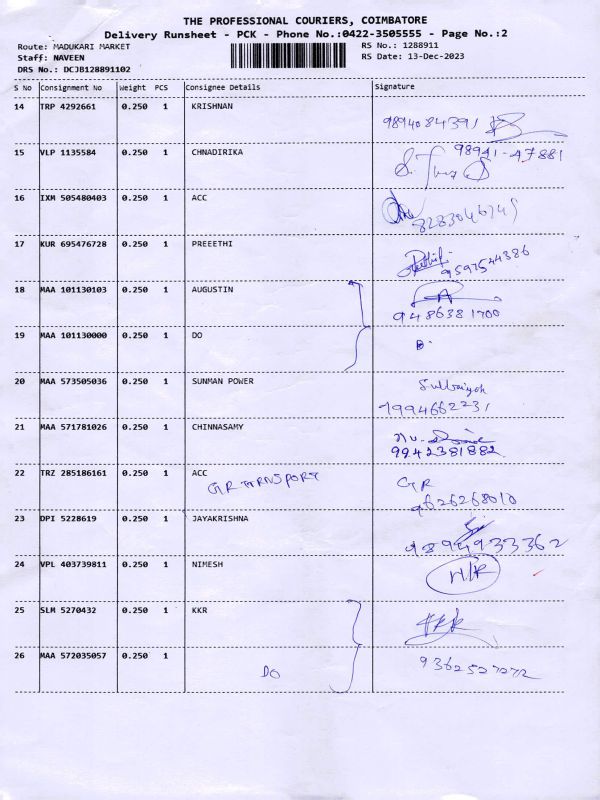 THE PROFESSIONAL COURIERS, COIMBATORE
Delivery Runsheet - PCK - Phone No.:0422-3505555 - Page No.:2
Route: MADUKARI MARKET RS No.: 1288911
Staff: NAVEEN RS Date: 13-Dec-2023
DRS No.: DCJB128891102
S No Consignment No Weight PCS Consignee Details Signature
14 TRP 4292661 0.250 1 KRISHNAN
9894084391
15 VLP 1135584 0.250 1 CHNADIRIKA 98941-47881
16 IXM 505480403 0.250 1 ACC
8283046749
17 KUR 695476728 0.250 1 PREEETHI
9597544386
18 MAA 101130103 0.250 1 AUGUSTIN
9486381700
19 MAA 101130000 0.250 1 DO
B.
20 MAA 573505036 0.250 1 SUNMAN POWER
7994662231
21 MAA 571781026 0.250 1 CHINNASAMY
9942381882
22 TRZ 285186161 0.250 1 ACC GR
GR TRNSPORT
9626268010
23 DPI 5228619 0.250 1 JAYAKRISHNA
9894933362
24 VPL 403739811 0.250 1 NIMESH
25 SLM 5270432 0.250 1 KKR
KKR
26 MAA 572035057 0.250 1
DO 9362527272